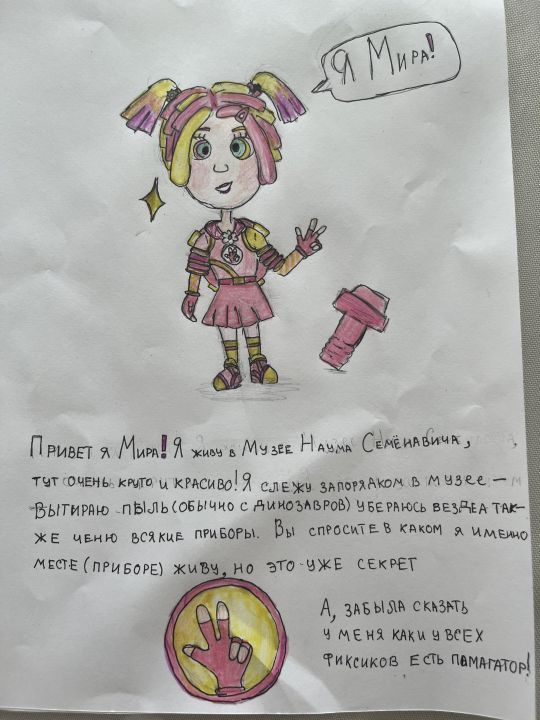 Я Мира!
Привет я Мира! Я живу в Музее Наума Семёнавича,
тут очень круто и красиво! Я слежу запорядком в музее —
вытираю пыль (обычно с динозавров) уберaюсь везде а так-
же ченю всякие приборы. Вы спросите в каком я именно
месте (приборе) живу, но это уже секрет
А, забыла сказать
у меня каки у всех
фиксиков есть памагатор!